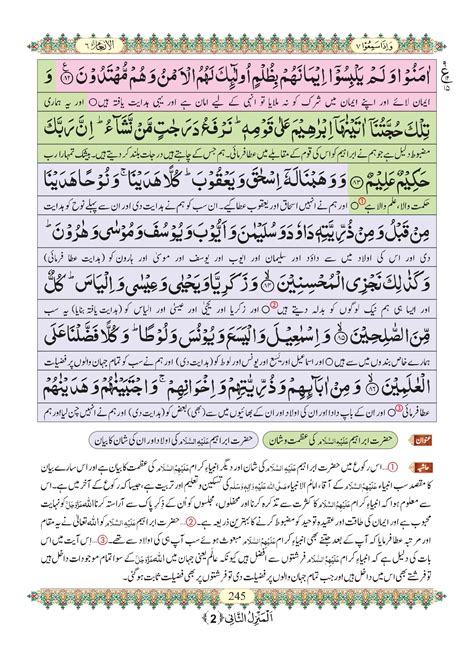 وَاِذَا سَمِعُوْا ٧
الْاَنْعَام ٦
اٰمَنُوْا وَ لَمْ یَلْبِسُوْۤا اِیْمَانَهُمْ بِظُلْمٍ اُولٰٓىٕكَ لَهُمُ الْاَمْنُ وَ هُمْ مُّهْتَدُوْنَ ﴿٨٢﴾ وَ
ایمان لائے اور اپنے ایمان میں شرک کو نہ ملایا تو انہی کے لیے امان ہے اور یہی ہدایت یافتہ ہیں ○ اور یہ ہماری
تِلْكَ حُجَّتُنَاۤ اٰتَیْنٰهَاۤ اِبْرٰهِیْمَ عَلٰى قَوْمِهٖ ؕ نَرْفَعُ دَرَجٰتٍ مَّنْ نَّشَآءُ ؕ اِنَّ رَبَّكَ
مضبوط دلیل ہے جو ہم نے ابراہیم کو اس کی قوم کے مقابلے میں عطا فرمائی۔ ہم جس کے چاہتے ہیں درجات بلند کردیتے ہیں۔ بیشک تمہارا رب
حَكِیْمٌ عَلِیْمٌ ﴿٨٣﴾ وَ وَهَبْنَا لَهٗۤ اِسْحٰقَ وَ یَعْقُوْبَ ؕ كُلًّا هَدَیْنَا ۚ وَ نُوْحًا هَدَیْنَا
حکمت والا، علم والا ہے ○① اور ہم نے انہیں اسحاق اور یعقوب عطا کیے۔ ان سب کو ہم نے ہدایت دی اور ان سے پہلے نوح کو ہدایت
مِنْ قَبْلُ وَ مِنْ ذُرِّیَّتِهٖ دَاوٗدَ وَ سُلَیْمٰنَ وَ اَیُّوْبَ وَ یُوْسُفَ وَ مُوْسٰى وَ هٰرُوْنَ ؕ
دی اور اس کی اولاد میں سے داؤد اور سلیمان اور ایوب اور یوسف اور موسیٰ اور ہارون کو (ہدایت عطا فرمائی)
وَ كَذٰلِكَ نَجْزِی الْمُحْسِنِیْنَ ﴿٨٤﴾ وَ زَكَرِیَّا وَ یَحْیٰى وَ عِیْسٰى وَ اِلْیَاسَ ؕ كُلٌّ
اور ایسا ہی ہم نیک لوگوں کو بدلہ دیتے ہیں ○② اور زکریا اور یحییٰ اور عیسیٰ اور الیاس کو (ہدایت یافتہ بنایا) یہ سب
مِّنَ الصّٰلِحِیْنَ ﴿٨٥﴾ وَ اِسْمٰعِیْلَ وَ الْیَسَعَ وَ یُوْنُسَ وَ لُوْطًا ؕ وَ كُلًّا فَضَّلْنَا عَلَى
ہمارے خاص بندوں میں سے ہیں ○ اور اسماعیل اور یسع اور یونس اور لوط کو (ہدایت دی) اور ہم نے سب کو تمام جہان والوں پر فضیلت
الْعٰلَمِیْنَ ﴿٨٦﴾ وَ مِنْ اٰبَآىٕهِمْ وَ ذُرِّیّٰتِهِمْ وَ اِخْوَانِهِمْ ۚ وَ اجْتَبَیْنٰهُمْ وَ هَدَیْنٰهُمْ
عطا فرمائی ○③ اور ان کے باپ دادا اور ان کی اولاد اور ان کے بھائیوں میں سے (بھی) بعض کو (ہدایت دی) اور ہم نے انہیں چن لیا اور ہم
عنوان حضرت ابراہیم عَلَیْهِ السَّلَام کی عظمت و شان حضرت ابراہیم عَلَیْهِ السَّلَام کی اولاد اور ان کی شان کا بیان
حاشیہ ①... اس رکوع میں حضرت ابراہیم عَلَیْهِ السَّلَام کی شان اور دیگر انبیاءِ کرام عَلَیْهِمُ السَّلَام کی عظمت کا بیان ہے اور اس سارے بیان
کا مقصد سب انبیاءِ کرام عَلَیْهِمُ السَّلَام کے آقا، امام الانبیاء صَلَّی اللهُ عَلَیْهِ وَاٰلِهٖ وَسَلَّم کی تسکین و تعلیم اور تربیت ہے، جیسا کہ رکوع کے آخر میں ہے۔ اس
سے معلوم ہوا کہ انبیاءِ کرام عَلَیْهِمُ السَّلَام کا کثرت سے تذکرہ کرنا اور محفلوں، مجلسوں کو اُن کے ذکرِ پاک سے آراستہ کرنا اللہ عَزَّوَجَلَّ کو
محبوب ہے اور ایمان کی طاقت اور عقیدہ توحید کو مضبوط کرنے کا بہترین ذریعہ ہے۔ ②... حضرت ابراہیم عَلَیْهِ السَّلَام کو اللہ تعالیٰ نے یہ مقام
اور مرتبہ عطا فرمایا کہ آپ کے بعد جتنے بھی انبیاءِ کرام عَلَیْهِمُ السَّلَام مبعوث ہوئے سب آپ ہی کی اولاد سے تھے۔ ③... اس آیت میں اس
بات کی دلیل ہے کہ انبیاءِ کرام عَلَیْهِمُ السَّلَام فرشتوں سے افضل ہیں کیونکہ عالَم یعنی جہان میں اللہ عَزَّوَجَلَّ کے سوا تمام موجودات داخل ہیں
تو فرشتے بھی اس میں داخل ہیں اور جب تمام جہان والوں پر فضیلت دی تو فرشتوں پر بھی فضیلت ثابت ہوگئی۔
245
اَلْمَنْزِلُ الثَّانِی ﴿2﴾